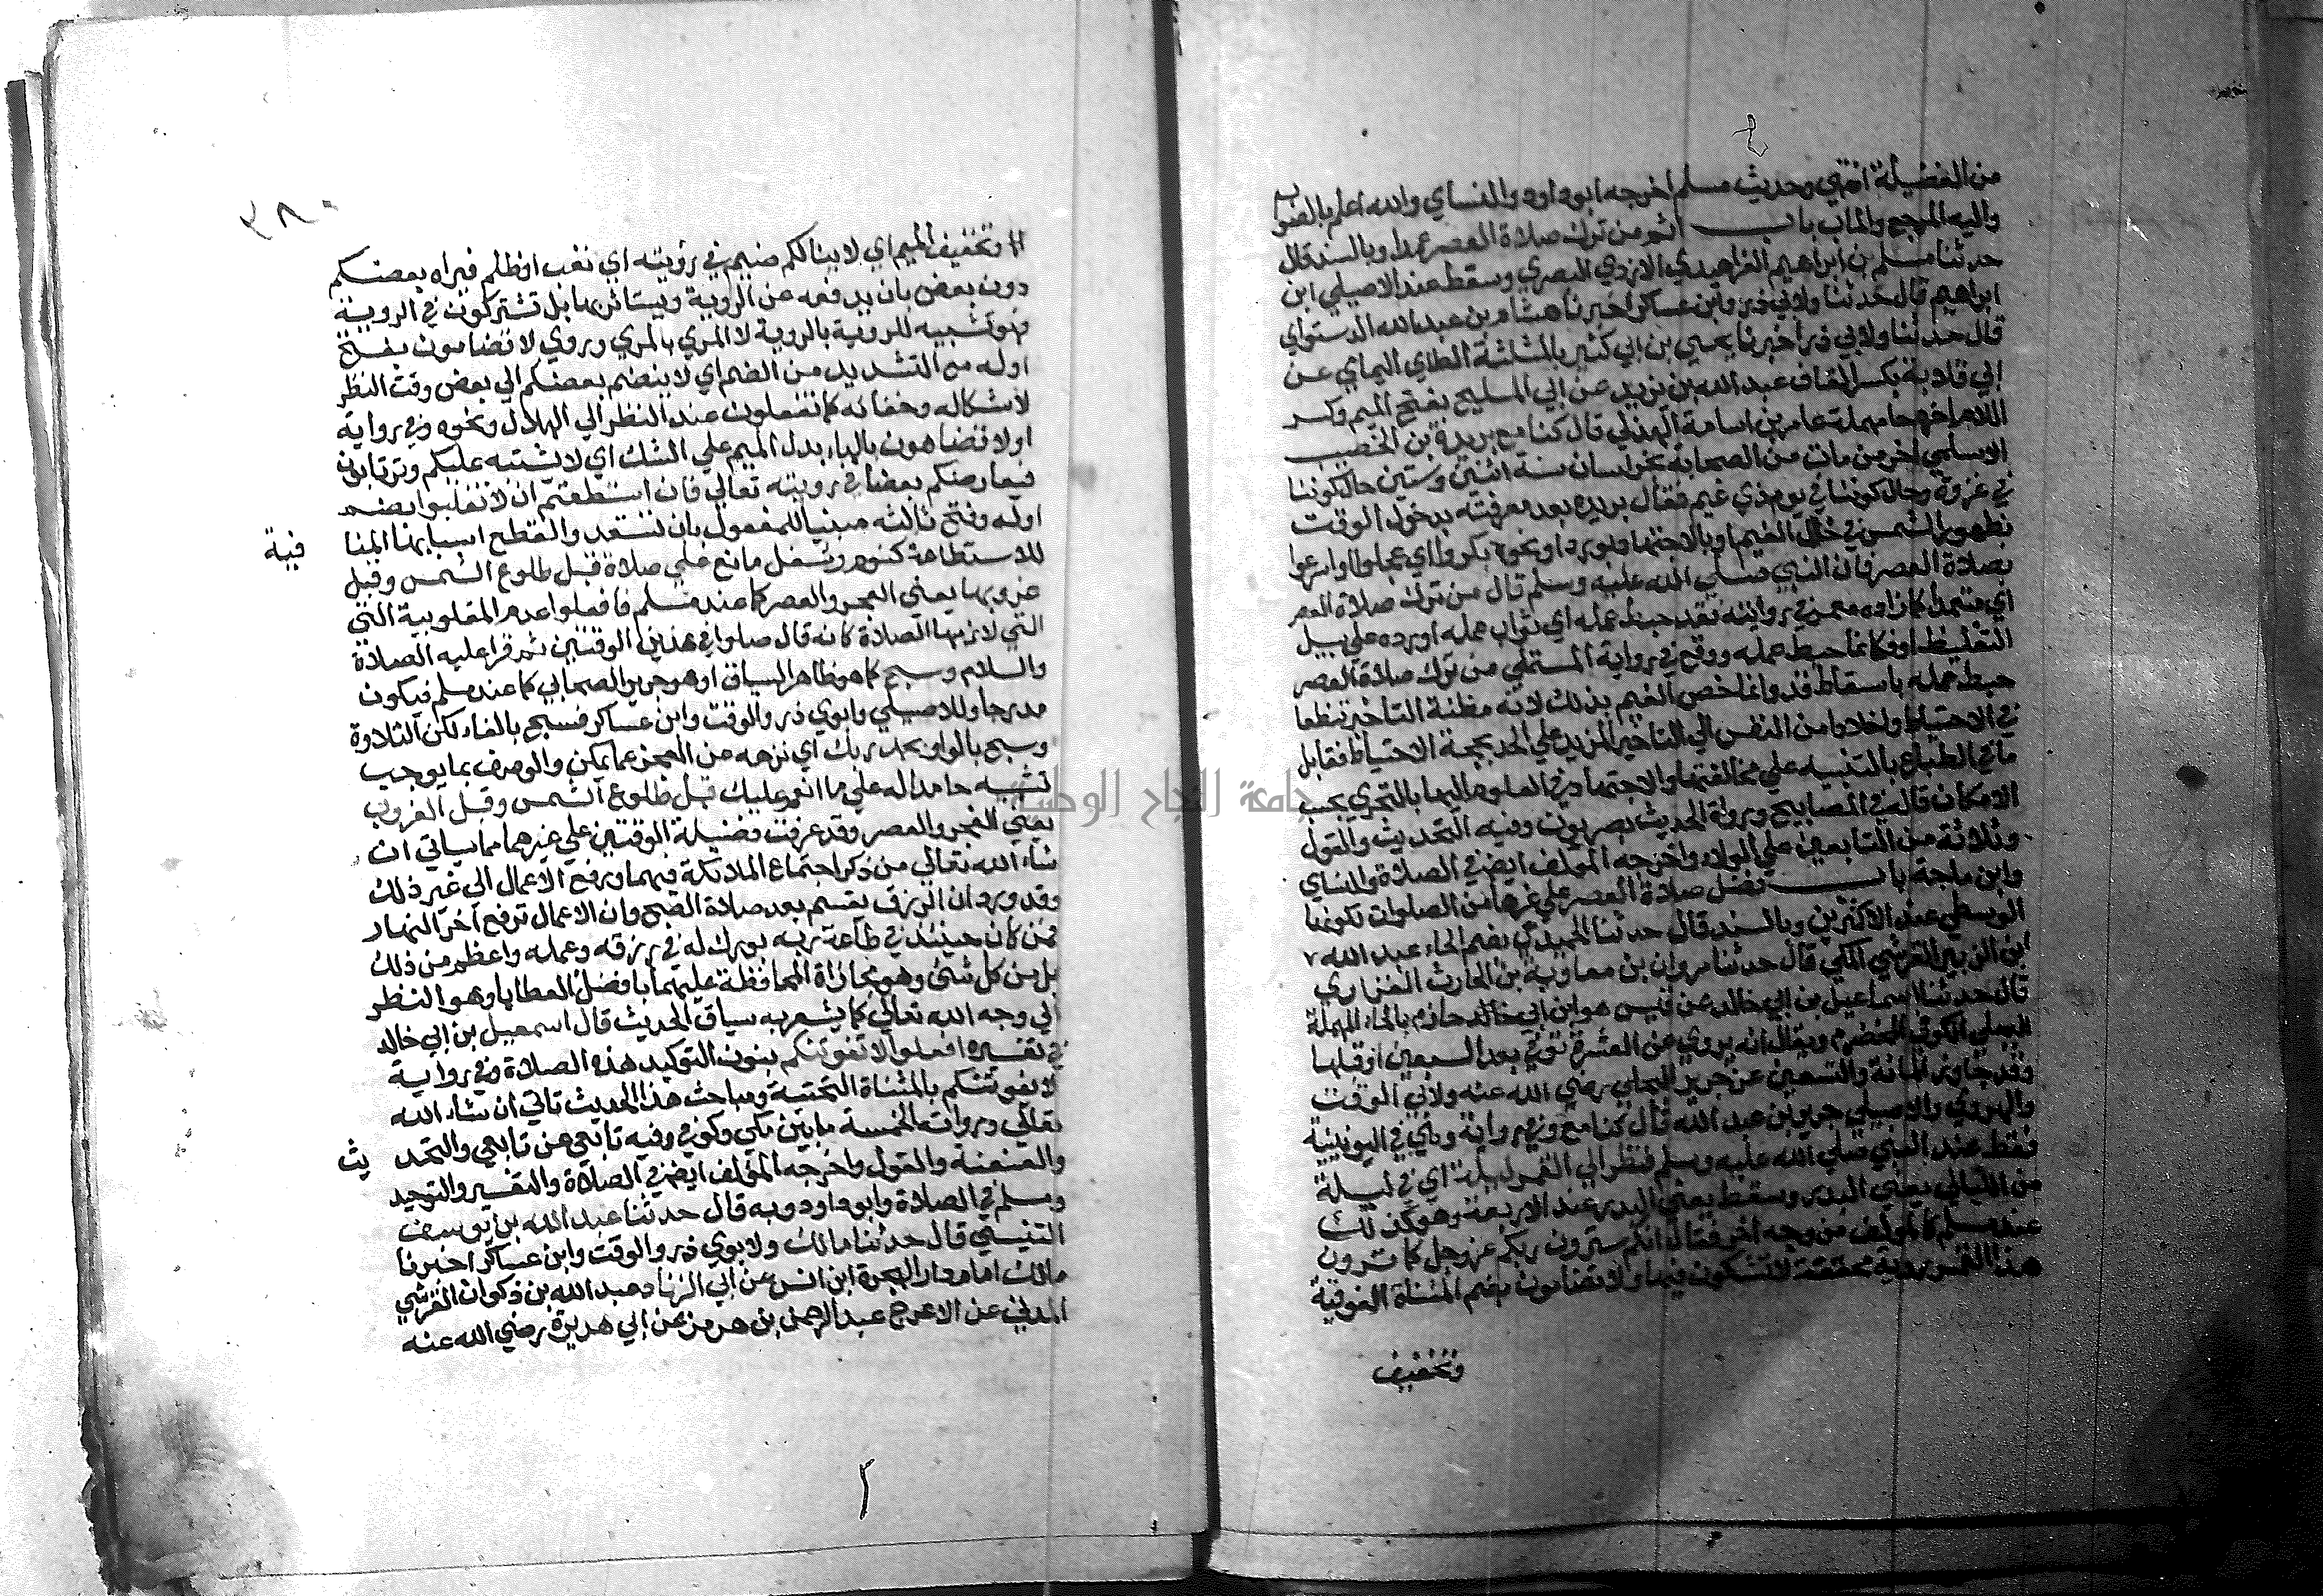 من الفضيلة انتهي وحديث مسلم اخرجه ابوداود والنساي والله اعلم بالصواب
واليه المرجع والماب باب اثم من ترك صلاة العصر عمدا وبالسند قال
حدثنا مسلم بن ابراهيم الفراهيدي الازدي البصري وسقط عند الاصيلي ابن
ابراهيم قال حدثنا ولابي ذر وابن عساكر اخبرنا هشام بن عبدالله الدستواي
قال حدثنا ولابي ذر اخبرنا يحيي بن ابي كثير بالمثلثة الطاي اليماي عن
ابي قلابة بكسر القاف عبد الله بن زيد عن ابي المليح بفتح الميم وكسر
اللام اخره حا مهملة عامر بن اسامة الهذلي قال كنا مع بريدة بن الخصيب
الاسلمي اخر من مات من الصحابة بخراسان سنة اثنين وستين حال كوننا
في غزوة وحال كوننا في يوم ذي غيم فقال بريده بعد معرفته بدخول الوقت
بظهور الشمس في خلال الغيم او بالاجتهاد بورد او نحوه بكروا اي عجلوا واسرعوا
بصلاة العصر فان النبي صلي الله عليه وسلم قال من ترك صلاة العصر
اي متعمدا كما زاده معمر في روايته فقد حبط عمله اي ثواب عمله اورده علي سبيل
التغليظ او فكانما حبط عمله ووقع في رواية المستملي من ترك صلاة العصر
حبط عمله باسقاط فقد وانما خص الغيم بذلك لانه مظنة التاخير تنطعا
في الاحتياط واخلادا من النفس الي التاخير المزيد علي الحد بحجة الاحتياط فقابل
ما في الطباع بالتنبيه علي مخالفتها والاجتهاد في العلوم اليها بالتحري بحسب
الامكان قاله في المصابيح ورواة الحديث بصريون وفيه التحديث والقول
وثلاثة من التابعين علي الولاء واخرجه المولف ايض في الصلاة والنساي
وابن ماجة باب فضل صلاة العصر علي غيرها من الصلوات لكونها
الوسطي عند الاكثرين وبالسند قال حدثنا الحميدي بضم الحاء عبد الله
ابن الزبير القرشي المكي قال حدثنا مروان بن معاوية بن الحارث الفزاري
قال حدثنا اسماعيل بن ابي خالد عن قيس هو ابن ابي خالد حازم بالحاء المهملة
البجلي الكوفي المخضرم ويقال انه يروي عن العشرة توفي بعد السبعين او قبلها
وقد جاوز المائة والتسعين عن جرير البجلي رضي الله عنه ولابي الوقت
والهروي والاصيلي جرير بن عبد الله قال كنا مع وفي رواية وهي في اليونينية
فقط عند النبي صلي الله عليه وسلم فنظر الي القمر ليلة اي في ليلة
من الليالي يعني البدر وسقط يعني البدر عند الاربعة وهو كذلك
عند مسلم كالمولف من وجه اخر فقال انكم سترون ربكم عز وجل كما ترون
هذا القمر روية محققة لا تشكون فيها ولا تضامون بضم المثناة الفوقية
وتخفيف
٣٨٠
وتخفيف الميم اي لا ينالكم ضيم في رؤيته اي تعب او ظلم فيراه بعضكم
دون بعض بان يدفعه عن الروية ويستاثر بها بل تشتركون في الروية
فهو تشبيه للروية بالروية لا المري بالمري وروي لا تضامون بفتح
اوله مع التشديد من الضم اي لا ينضم بعضكم الي بعض وقت النظر
لاشكاله وخفائه كما تفعلون عند النظر الي الهلال ونحوه وفي رواية
اولا تضاهون بالهاء بدل الميم علي الشك اي لا يشتبه عليكم وترتابون
فيعارضكم بعضا في رويته تعالي فان استطعتم ان لا تغلبوا بضم
اوله وفتح ثالثه مبنيا للمفعول بان تستعد والقطع اسبابها المنا فية
للاستطاعة كنوم وشغل مانع علي صلاة قبل طلوع الشمس وقبل
غروبها يعني الفجر والعصر كما عند مسلم فافعلوا عدم المغلوبية التي
التي لازمها الصلاة كانه قال صلوا في هذين الوقتين ثم قرا عليه الصلاة
والسلام وسبح كما هو ظاهر السياق او هو جرير الصحابي كما عند مسلم فيكون
مدرجا وللاصيلي وابوي ذر والوقت وابن عساكر فسبح بالفاء لكن التلاوة
وسبح بالواو بحمد ربك اي نزهه من العجز عما يمكن والوصف بما يوجب
تشبيه حامدا له علي ما انعم عليك قبل طلوع الشمس وقبل الغروب
يعني الفجر والعصر وقد عرفت فضيلة الوقتين علي غيرهما مما سياتي ان
شاء الله تعالي من ذكر اجتماع الملائكة فيهما ورفع الاعمال الي غير ذلك
وقد ورد ان الرزق يقسم بعد صلاة الصبح وان الاعمال ترفع آخر النهار
فمن كان حينئذ في طاعة ربه بورك له في رزقه وعمله واعظم من ذلك
بل من كل شئ وهو مجازاة المحافظة عليهما بافضل العطايا وهو النظر
الي وجه الله تعالي كما يشعر به سياق الحديث قال اسمعيل بن ابي خالد
في تفسيره افعلوا لا تفوتنكم بنون التوكيد هذه الصلاة وفي رواية
لا يفوتنكم بالمثناة التحتية ومباحث هذا الحديث تاتي ان شاء الله
تعالي ورواته الخمسة ما بين مكي وكوفي وفيه تابعي عن تابعي والتحد يث
والعنعنة والقول واخرجه المؤلف ايض في الصلاة والتفسير والتوحيد
ومسلم في الصلاة وابوداود وبه قال حدثنا عبد الله بن يوسف
التنيسي قال حدثنا مالك ولابوي ذر والوقت وابن عساكر اخبرنا
مالك امام دار الهجرة ابن انس عن ابي الزناد عبد الله بن ذكوان القرشي
المدني عن الاعرج عبد الرحمن بن هرمز عن ابي هريرة رضي الله عنه
جامعة النجاح الوطنية